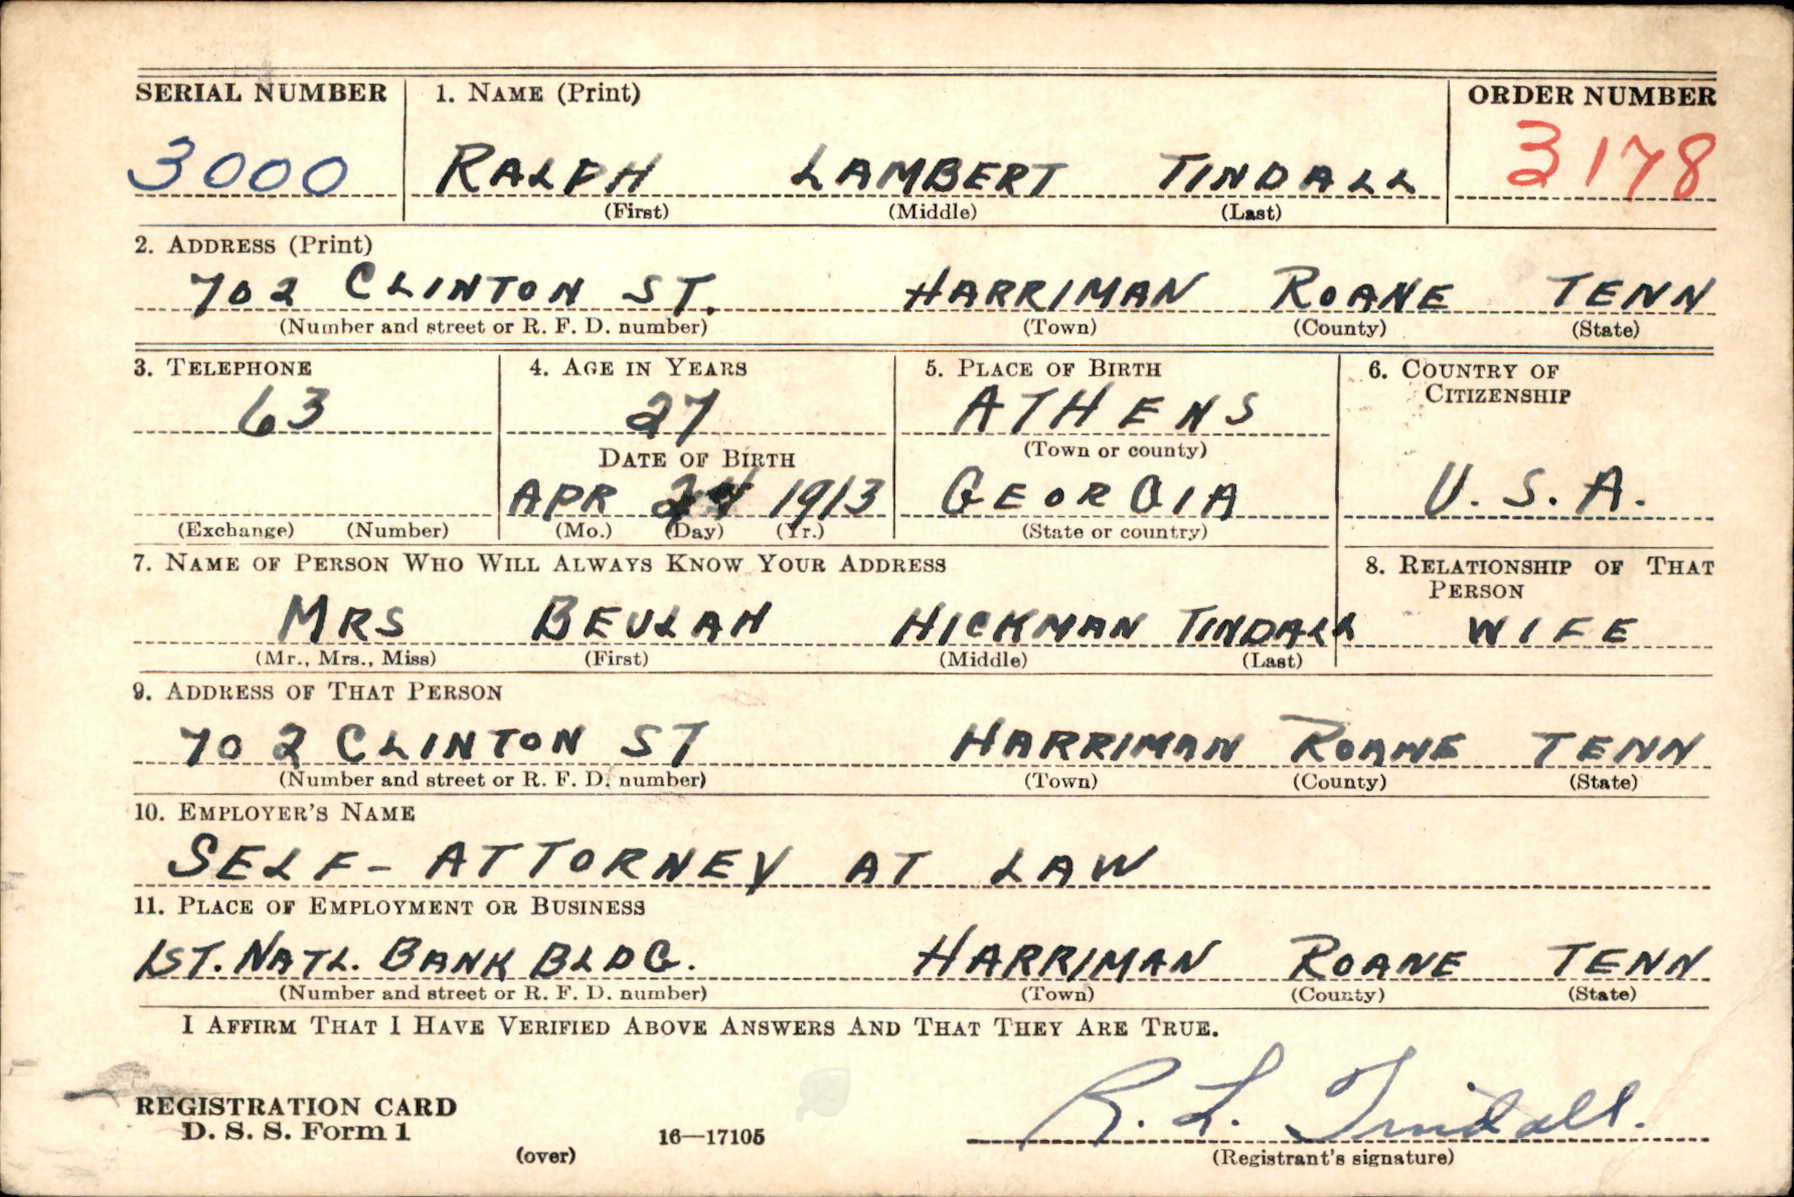 SERIAL NUMBER 1. NAME (Print) ORDER NUMBER
3000 RALPH LAMBERT TINDALL 3178
(First) (Middle) (Last)
2. ADDRESS (Print)
702 CLINTON ST. HARRIMAN ROANE TENN
(Number and street or R. F. D. number) (Town) (County) (State)
3. TELEPHONE 4. AGE IN YEARS 5. PLACE OF BIRTH 6. COUNTRY OF
CITIZENSHIP
63 27 ATHENS
DATE OF BIRTH (Town or county)
APR 1913 GEORGIA U. S. A.
(Exchange) (Number) (Mo.) (Day) (Yr.) (State or country)
7. NAME OF PERSON WHO WILL ALWAYS KNOW YOUR ADDRESS 8. RELATIONSHIP OF THAT
PERSON
MRS BEULAH HICKMAN TINDALL WIFE
(Mr., Mrs., Miss) (First) (Middle) (Last)
9. ADDRESS OF THAT PERSON
702 CLINTON ST HARRIMAN ROANE TENN
(Number and street or R. F. D. number) (Town) (County) (State)
10. EMPLOYER'S NAME
SELF - ATTORNEY AT LAW
11. PLACE OF EMPLOYMENT OR BUSINESS
1ST. NATL. BANK BLDG. HARRIMAN ROANE TENN
(Number and street or R. F. D. number) (Town) (County) (State)
I AFFIRM THAT I HAVE VERIFIED ABOVE ANSWERS AND THAT THEY ARE TRUE.
REGISTRATION CARD
D. S. S. Form 1
R. L. Tindall.
(over) 16—17105 (Registrant's signature)